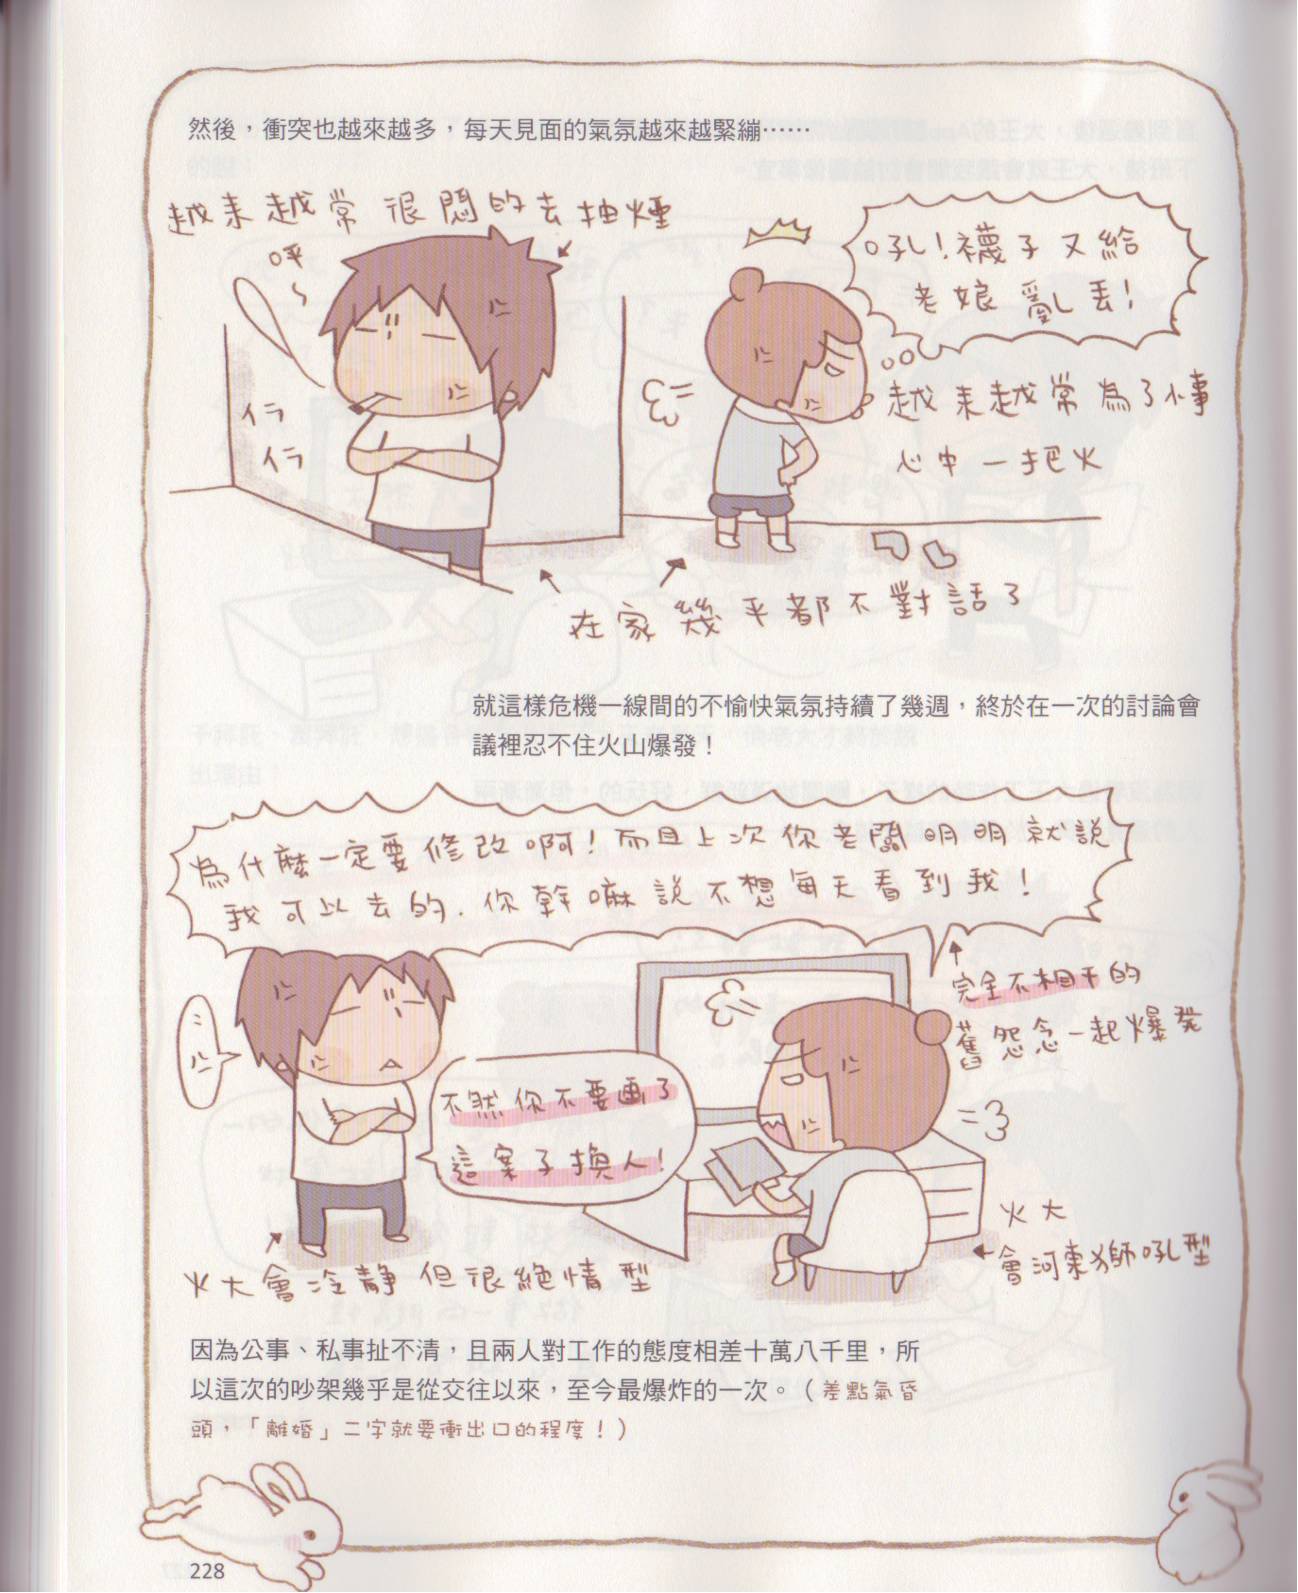 然後，衝突也越來越多，每天見面的氣氛越來越緊繃……
越來越常 很悶的去抽煙
呼～
吼！襪子又給
老娘亂丟！
越來越常為了小事
心中一把火
在家幾乎都不對話了
就這樣危機一線間的不愉快氣氛持續了幾週，終於在一次的討論會
議裡忍不住火山爆發！
為什麼一定要修改啊！而且上次你老闆明明就說
我可以去的．你幹嘛說不想每天看到我！
完全不相干的
舊怨念一起爆発
不然你不要画了
這案子換人！
火大
會河東獅吼型
火大會冷靜但很絕情型
因為公事、私事扯不清，且兩人對工作的態度相差十萬八千里，所
以這次的吵架幾乎是從交往以來，至今最爆炸的一次。（差點氣昏
頭，「離婚」二字就要衝出口的程度！）
228